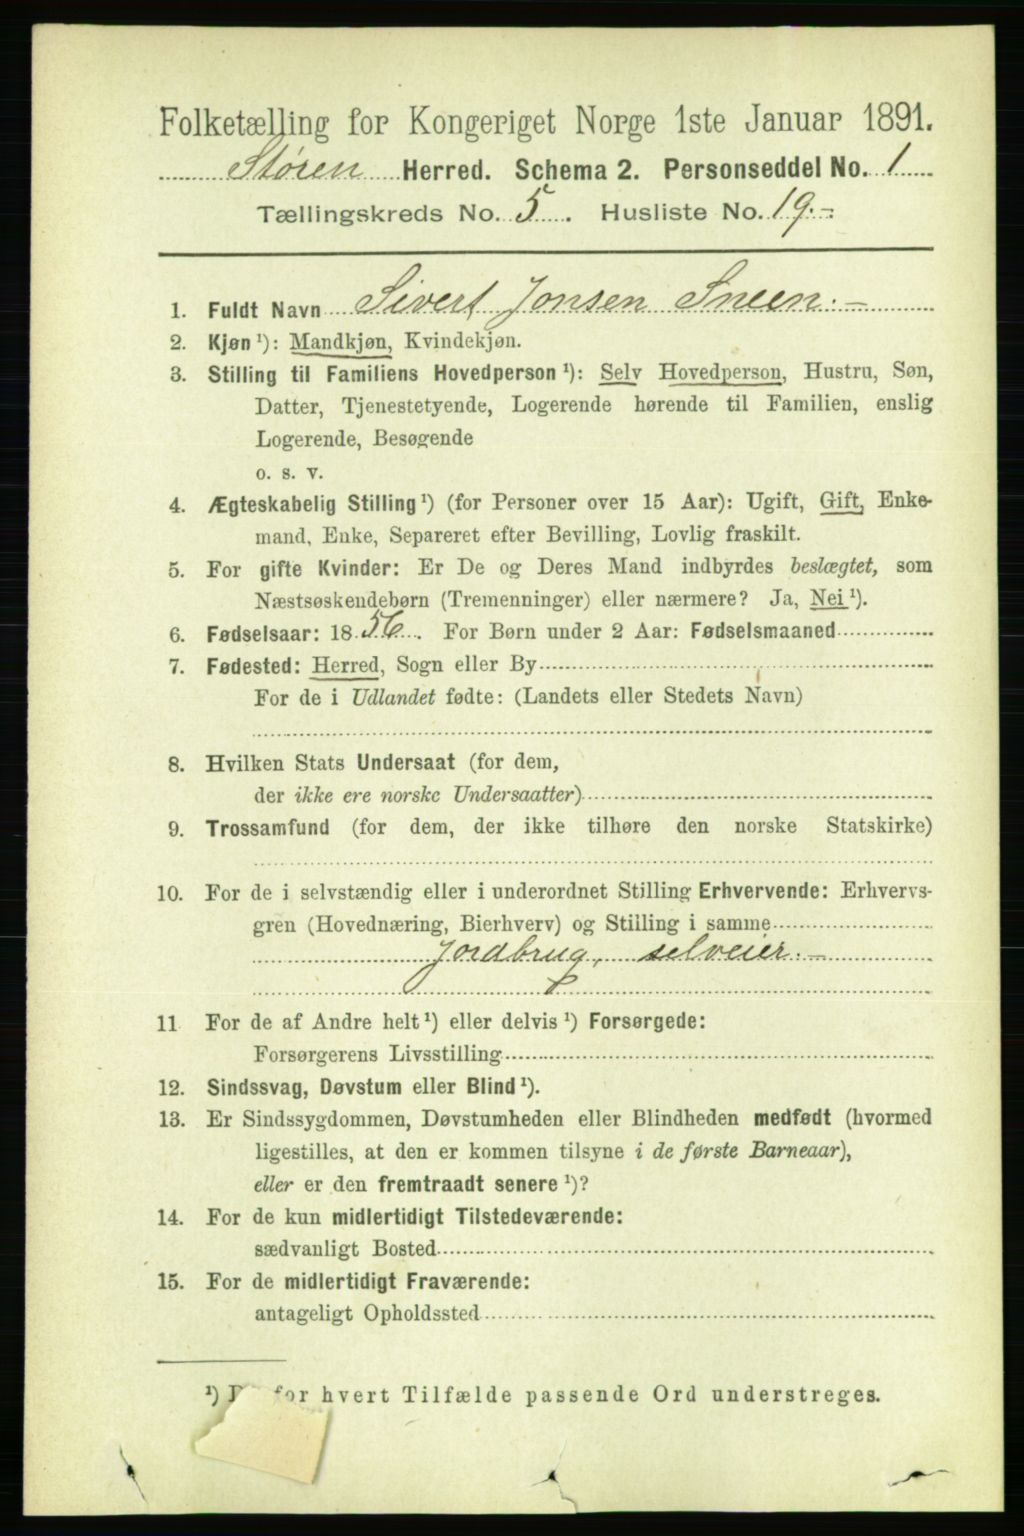 Folketælling for Kongeriget Norge 1ste Januar 1891.
Støren Herred. Schema 2. Personseddel No. 1
Tællingskreds No. 5. Husliste No. 19.-
1. Fuldt Navn Sivert Jonsen Sneen.-
2. Kjøn ¹): Mandkjøn, Kvindekjøn.
3. Stilling til Familiens Hovedperson ¹): Selv Hovedperson, Hustru, Søn,
Datter, Tjenestetyende, Logerende hørende til Familien, enslig
Logerende, Besøgende
o. s. v.
4. Ægteskabelig Stilling ¹) (for Personer over 15 Aar): Ugift, Gift, Enke-
mand, Enke, Separeret efter Bevilling, Lovlig fraskilt.
5. For gifte Kvinder: Er De og Deres Mand indbyrdes beslægtet, som
Næstsøskendebørn (Tremenninger) eller nærmere? Ja, Nei ¹).
6. Fødselsaar: 1856. For Børn under 2 Aar: Fødselsmaaned
7. Fødested: Herred, Sogn eller By
For de i Udlandet fødte: (Landets eller Stedets Navn)
8. Hvilken Stats Undersaat (for dem,
der ikke ere norske Undersaatter)
9. Trossamfund (for dem, der ikke tilhøre den norske Statskirke)
10. For de i selvstændig eller i underordnet Stilling Erhvervende: Erhvervs-
gren (Hovednæring, Bierhverv) og Stilling i samme
Jordbrug, selveier.-
11 For de af Andre helt ¹) eller delvis ¹) Forsørgede:
Forsørgerens Livsstilling
12. Sindssvag, Døvstum eller Blind ¹).
13. Er Sindssygdommen, Døvstumheden eller Blindheden medfødt (hvormed
ligestilles, at den er kommen tilsyne i de første Barneaar),
eller er den fremtraadt senere ¹)?
14. For de kun midlertidigt Tilstedeværende:
sædvanligt Bosted
15. For de midlertidigt Fraværende:
antageligt Opholdssted
¹) for hvert Tilfælde passende Ord understreges.